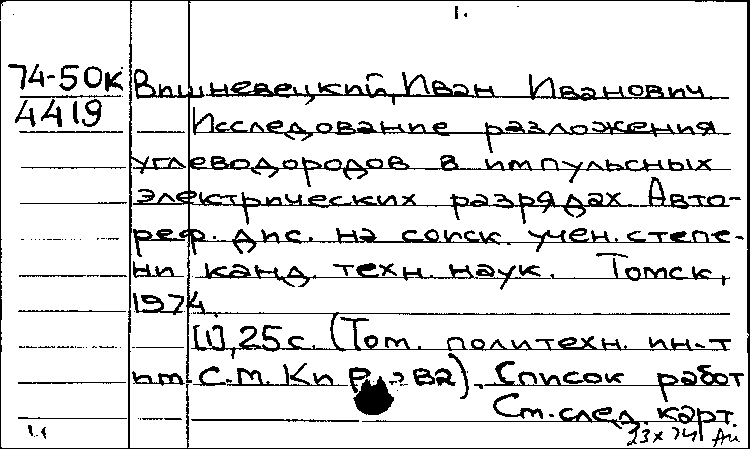 1.
74-50к Вишневецкий, Иван Иванович.
4419 Исследование разложения
углеводородов в импульсных
электрических разрядах. Авто-
реф. дис. на соиск. учен. степе-
ни канд. техн. наук. Томск,
1974.
[1], 25 с. (Том. политехн. ин-т
им. С.М. Ки ва). Список работ
См. след. карт.